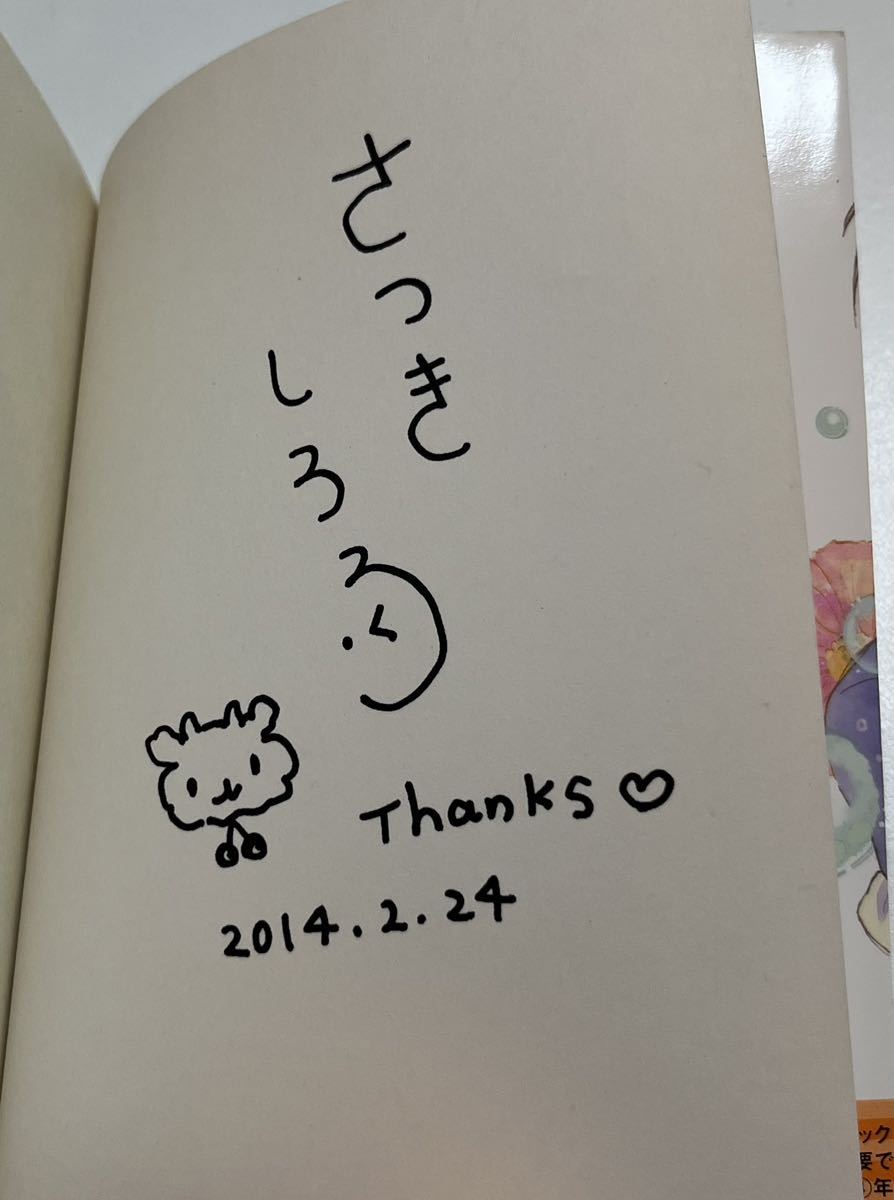 さっき
しろろ
Thanks♡
2014.2.24
ック
要で
年